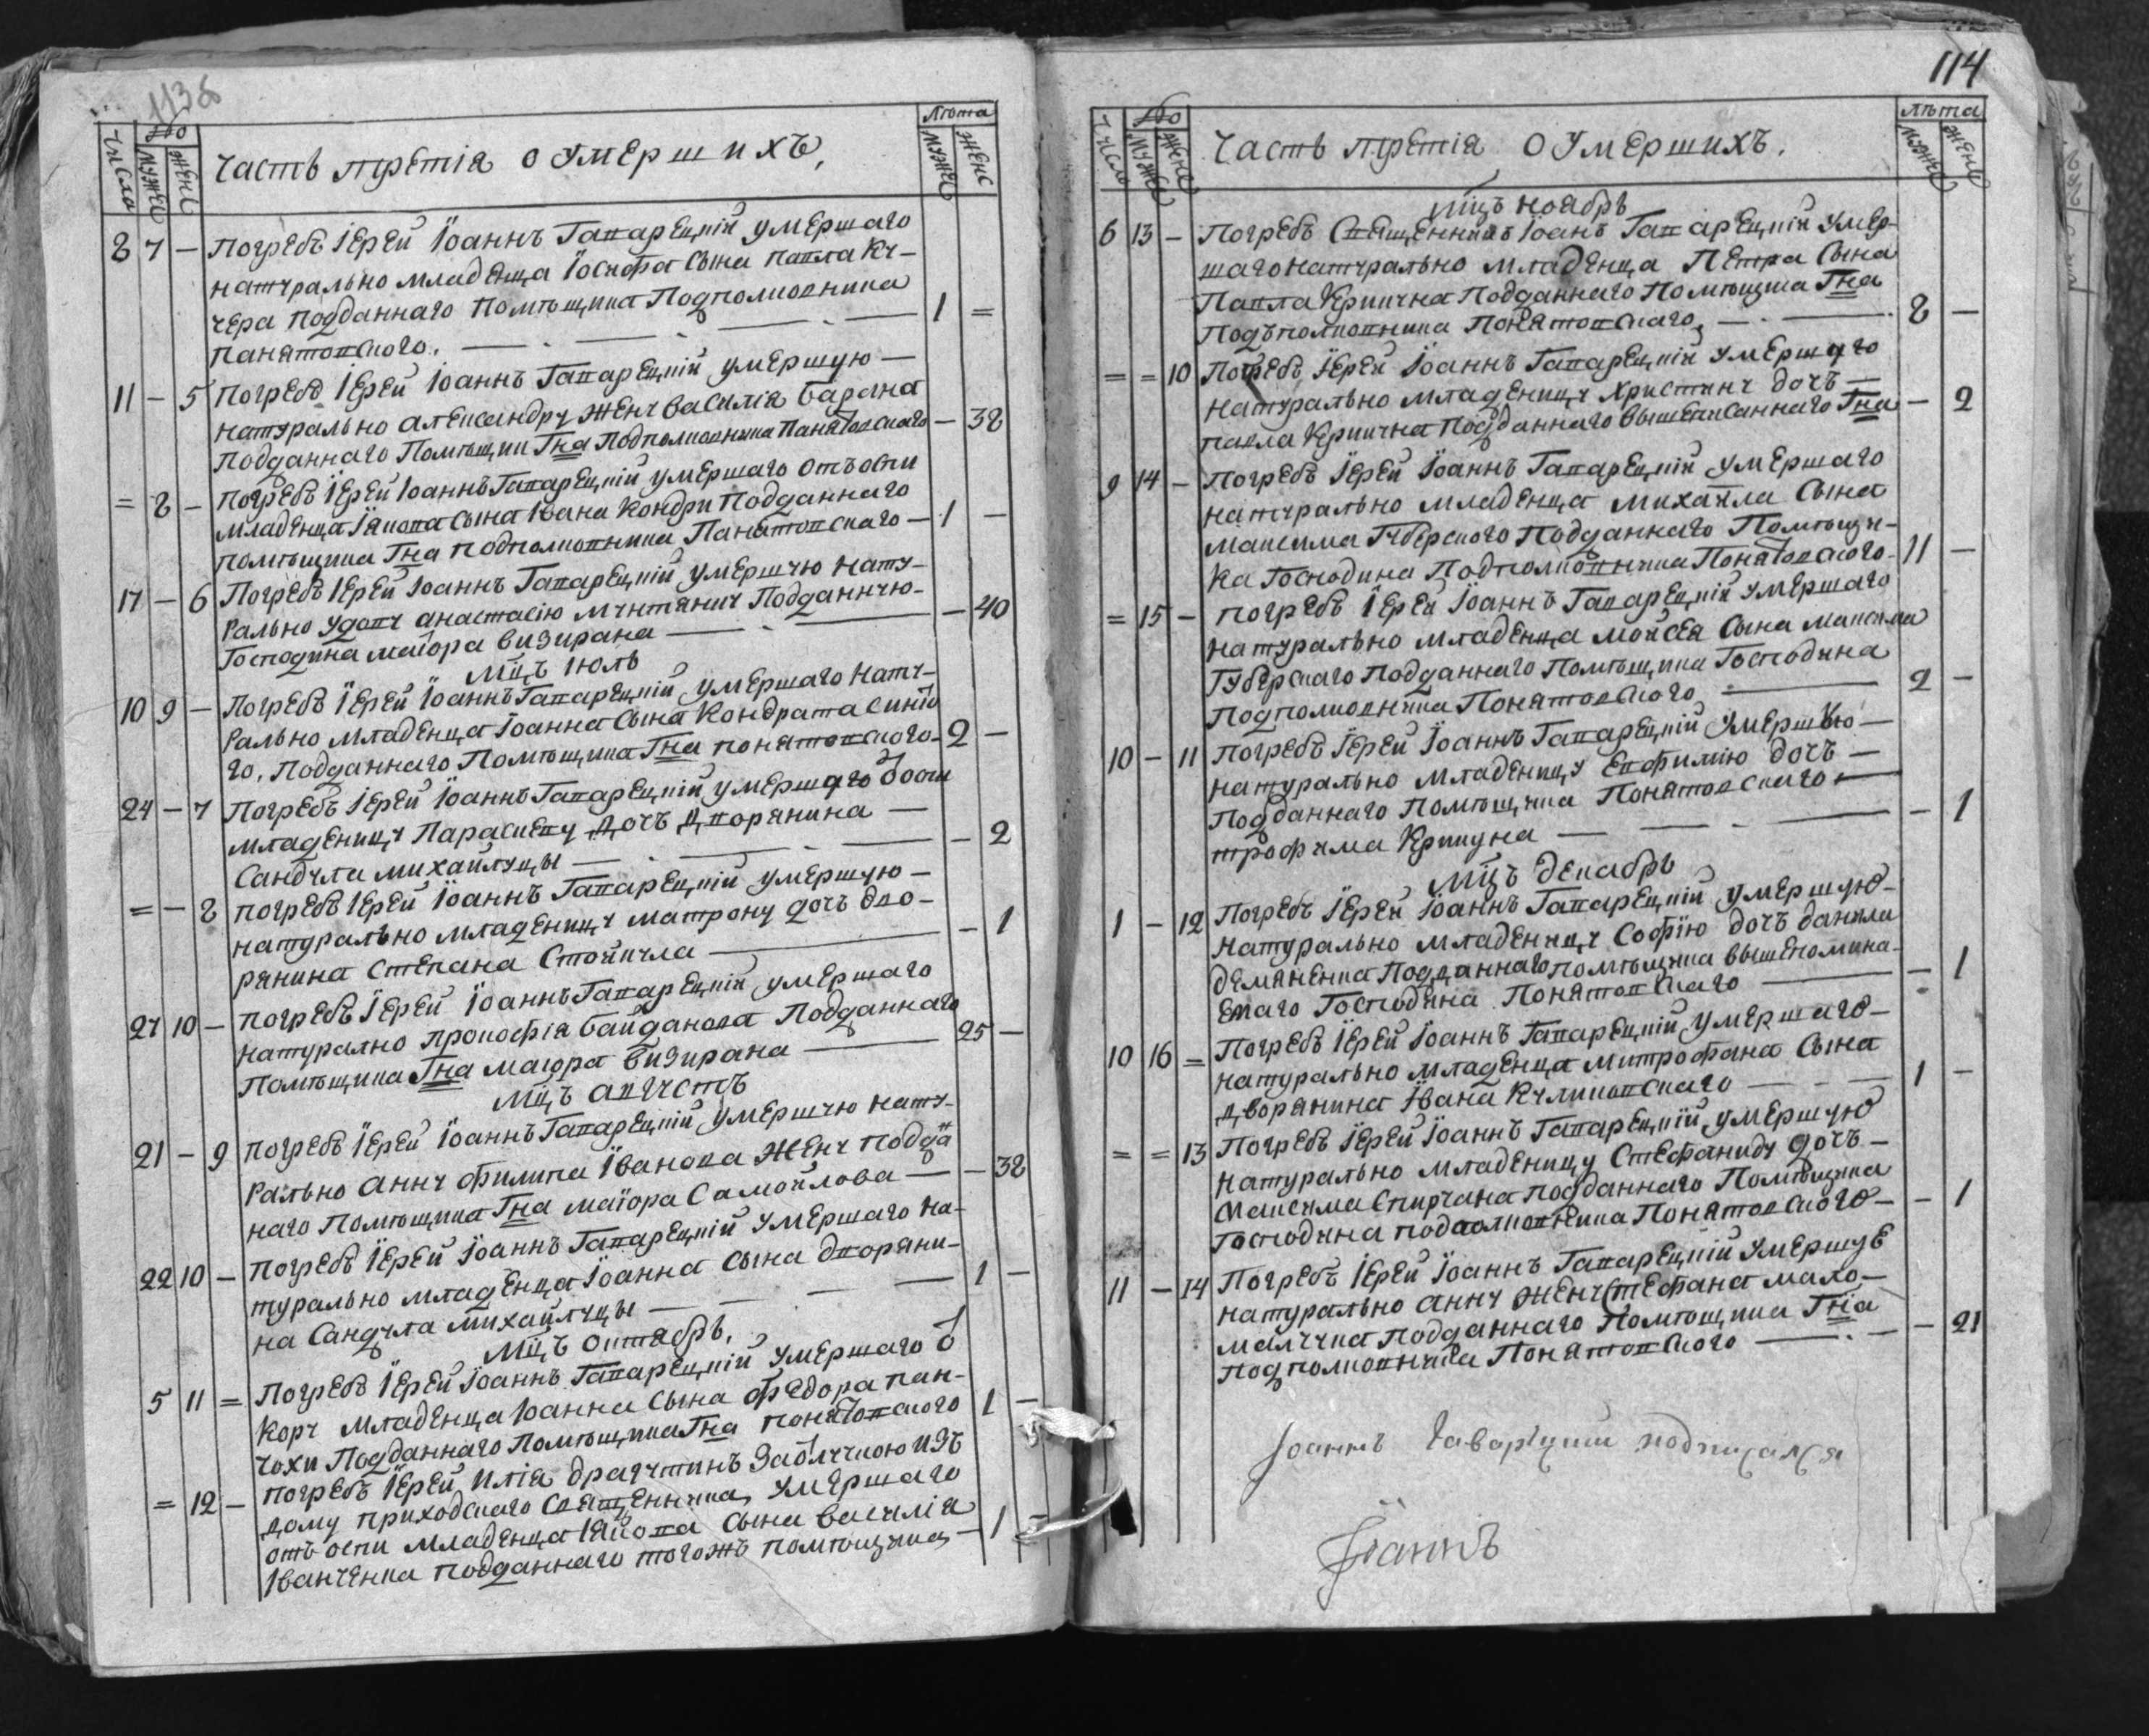 113об
Число №о Мужес Женс Часть третія о умершихъ, Лѣта Мужес Женс
8 7 — Погребъ Іерей Іоаннъ Гаварецкій умершаго
натурально младенца Іосифа сына павла Ку-
чера подданнаго Помѣщика Подполковника
Панятовскаго. 1 =
11 — 5 Погребъ Іерей Іоаннъ Гаварецкій умершую —
натурально александру жену василія барана
Подданнаго Помѣщик Гна Подполковника Панятовскаго — 38
= 8 — Погребъ Іерей Іоаннъ Гаварецкій умершаго отъ оспи
младенца Іякова сына Івана Кондри Подданнаго
помѣщика Гна подполковника Панятовскаго — 1 —
17 — 6 Погребъ Іерей Іоаннъ Гаварецкій умершую нату-
рально удову анастасію мунтянку Подданную-
Господина маіора визирана — — 40
Мцъ Іюль
10 9 — Погребъ Іерей Іоаннъ Гаварецкій умершаго нату-
рально младенца Іоанна сына Кондрата синю
го, Подданнаго Помѣщика Гна понятовскаго- 2 —
24 — 7 Погребъ Іерей Іоаннъ Гаварецкій умершаго
младеницу Параскеву дочъ дворянина —
Сандула михайлуцы — — 2
= — 8 погребъ Іерей Іоаннъ Гаварецкій умершую —
натурально младеницу матрону дочъ дво-
рянина Степана Стойкула — — 1
27 10 — погребъ Іерей Іоаннъ Гаварецкій умершаго
натурално прокофія байданова Подданнаго
Помѣщика Гна маюра визирана — 25 —
Мцъ августъ
21 — 9 погребъ Іерей Іоаннъ Гаварецкій умершую нату-
рально анну филипа Іванова жену подда
наго помѣщика Гна маіора Самойлова — — 38
22 10 — погребъ Іерей Іоаннъ Гаварецкій умершаго на-
турально младенца Іоанна сына дворяни-
на Сандула михайлуцы — 1 —
Мцъ октябръ,
5 11 = Погребъ Іерей Іоаннъ Гаварецкій умершаго
кору младенца Іоанна сына федора пан-
чохи Подданнаго Помѣщика Гна понятовскаго 1 —
= 12 — погребъ Іерей Илія драгутинъ
дому приходскаго священника, умершаго
отъ оспи младенца Іякова сына василія
Іванченка подданнаго тогожъ помѣщика — 1 —
114
Число №о Мужес Женс Часть третія о умершихъ. Лѣта Мужес Женс
Мцъ ноябръ
6 13 — Погребъ Священникъ Іоанъ Гаварецкій умер-
шаго натурально младенца Петра сына
Павла Крикуна Подданнаго Помѣщика Гна
Подъполковника Понятовскаго, 8 —
= = 10 Погребъ Іерей Іоаннъ Гаварецкій умершаго
натурально младеницу христину дочъ —
павла Крикуна подданнаго вышеписаннаго Гна — 2
9 14 — Погребъ Іерей Іоаннъ Гаварецкій умершаго
натурально младенца михаила сына
максима Губерского Подданнаго Помѣщи-
ка Господина Подполковника Понятовского. 11 —
= 15 — погребъ Іерей Іоаннъ Гаварецкій умершаго
натурально младенца мойсея сына максима
Губерскаго подданнаго помѣщика Господина
Подполковника Понятовскаго 2 —
10 — 11 погребъ Іерей Іоаннъ Гаварецкій умершую —
натурально младеницу Евфимію дочъ —
Подданнаго помѣщика Понятовскаго —
трофима Крикуна — — 1
Мцъ декабръ
1 — 12 Погребъ Іерей Іоаннъ Гаварецкій умершую-
натурально младеницу Софію дочъ данила
демяненка подданнаго помѣщика вышепомина-
емаго Господина Понятовскаго — — 1
10 16 = Погребъ Іерей Іоаннъ Гаварецкій умершаго —
натурально младенца митрофана сына
дворянина Івана Куликовскаго — 1 —
= = 13 Погребъ Іерей Іоаннъ Гаварецкій умершую
натурально младеницу Стефаниду дочъ —
максима Спирчана подданнаго Помѣщика
Господина подполковника Понятовского — — 1
11 — 14 Погребъ Іерей Іоаннъ Гаварецкій умершуе
натурально анну жену Стефана мало-
малчука подданнаго Помѣщика Гна
подполковника Понятовского — — 21
Іоаннъ Гаварецкий подписался
Іоаннъ